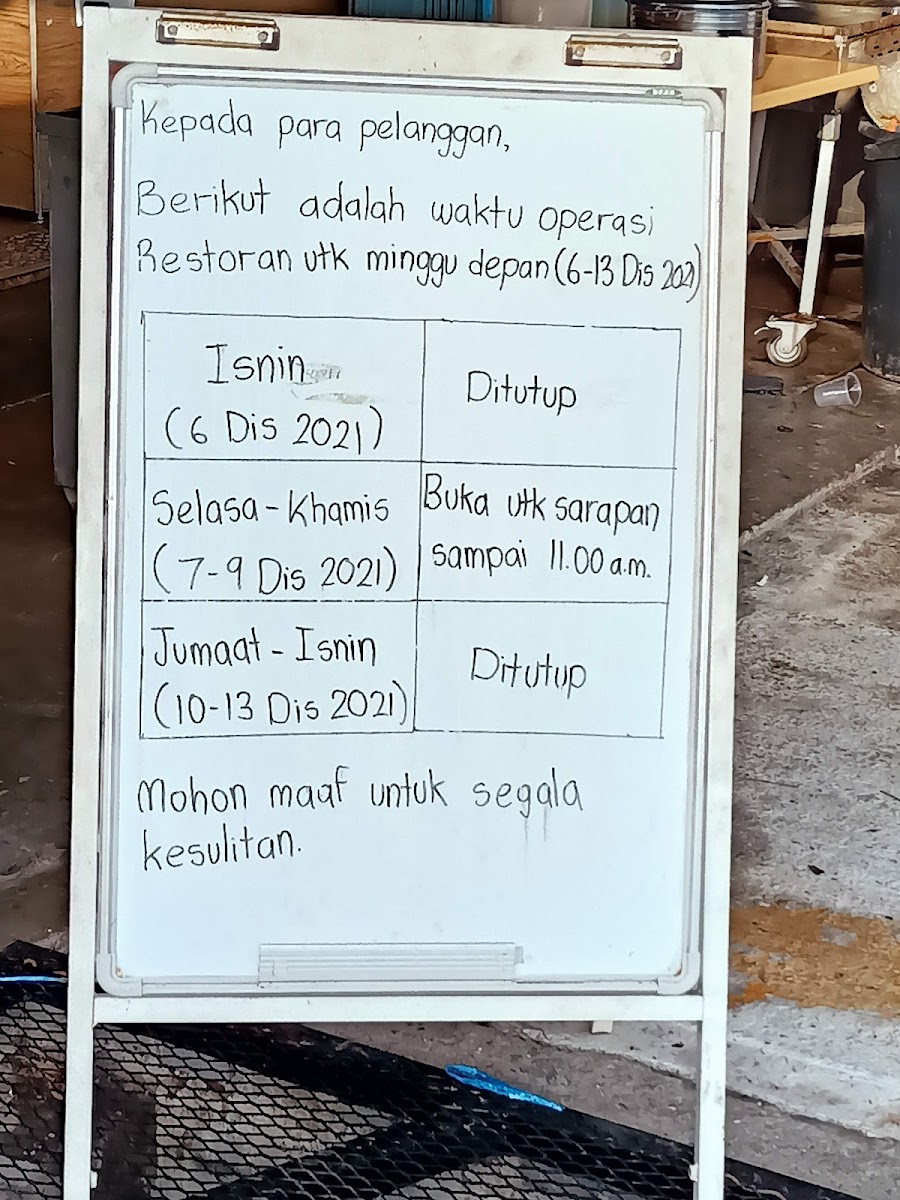 Kepada para pelanggan,
Berikut adalah waktu operasi
Restoran utk minggu depan (6-13 Dis 2021)
Isnin
(6 Dis 2021)
Ditutup
Selasa - Khamis
(7-9 Dis 2021)
Buka utk sarapan
sampai 11.00 a.m.
Jumaat - Isnin
(10-13 Dis 2021)
Ditutup
Mohon maaf untuk segala
kesulitan.